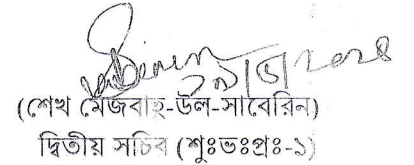 (শেখ মেজবাহ-উল-সাবেরিন)
দ্বিতীয় সচিব (শুঃভঃপ্রঃ-১)